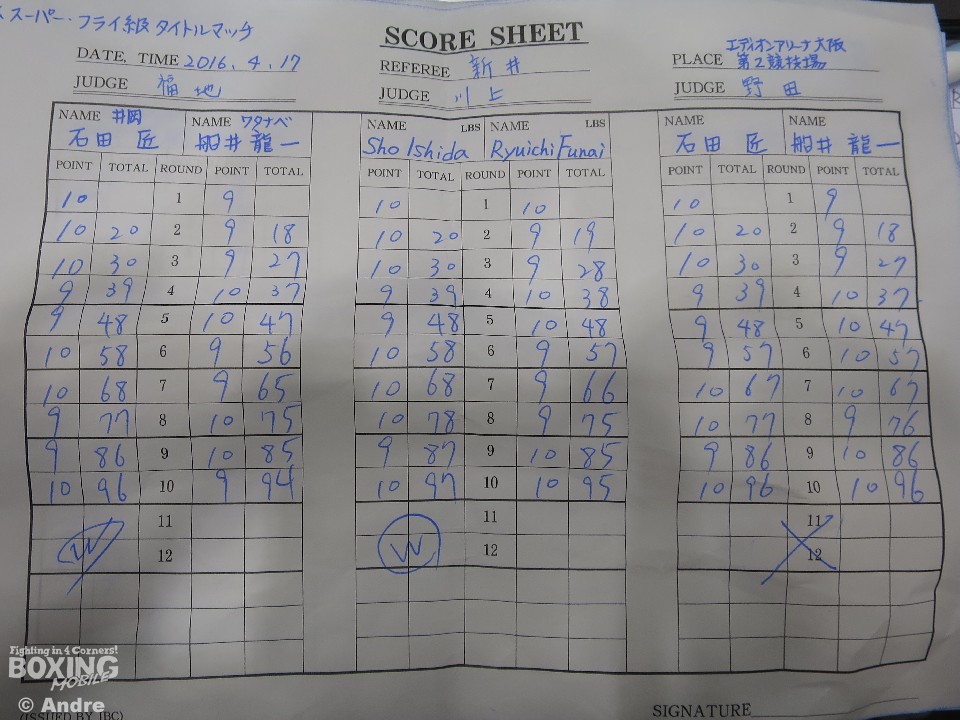 スーパー・フライ級タイトルマッチ
SCORE SHEET
DATE, TIME 2016. 4. 17
REFEREE 新井
PLACE エディオンアリーナ大阪
第2競技場
JUDGE 福地
JUDGE 川上
JUDGE 野田
NAME 井岡 NAME ワタナベ NAME LBS NAME LBS NAME NAME
石田 匠 船井龍一 Sho Ishida Ryuichi Funai 石田 匠 船井龍一
POINT TOTAL ROUND POINT TOTAL POINT TOTAL ROUND POINT TOTAL POINT TOTAL ROUND POINT TOTAL
10 1 9 10 1 10 10 1 9
10 20 2 9 18 10 20 2 9 19 10 20 2 9 18
10 30 3 9 27 10 30 3 9 28 10 30 3 9 27
9 39 4 10 37 9 39 4 10 38 9 39 4 10 37
9 48 5 10 47 9 48 5 10 48 9 48 5 10 47
10 58 6 9 56 10 58 6 9 57 9 57 6 10 57
10 68 7 9 65 10 68 7 9 66 10 67 7 10 67
9 77 8 10 75 10 78 8 9 75 10 77 8 9 76
9 86 9 10 85 9 87 9 10 85 9 86 9 10 86
10 96 10 9 94 10 97 10 10 95 10 96 10 10 96
11 11 11
W 12 W 12 12
Fighting in 4 Corners!
BOXING
MOBILE
© Andre
(ISSUED BY JBC)
SIGNATURE